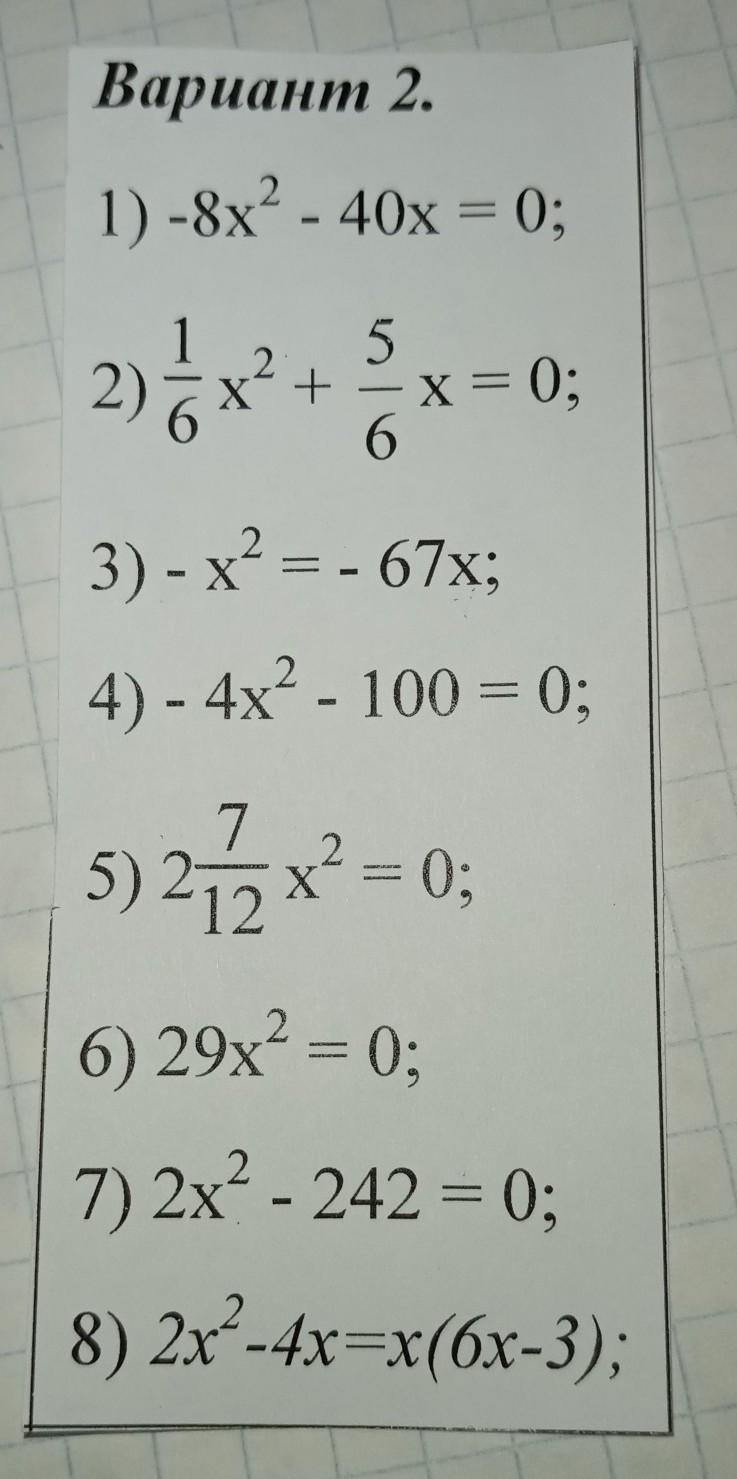 Вариант 2.
1) -8x² - 40x = 0;
2) 1/6 x² + 5/6 x = 0;
3) - x² = - 67x;
4) - 4x² - 100 = 0;
5) 2 7/12 x² = 0;
6) 29x² = 0;
7) 2x² - 242 = 0;
8) 2x²-4x=x(6x-3);